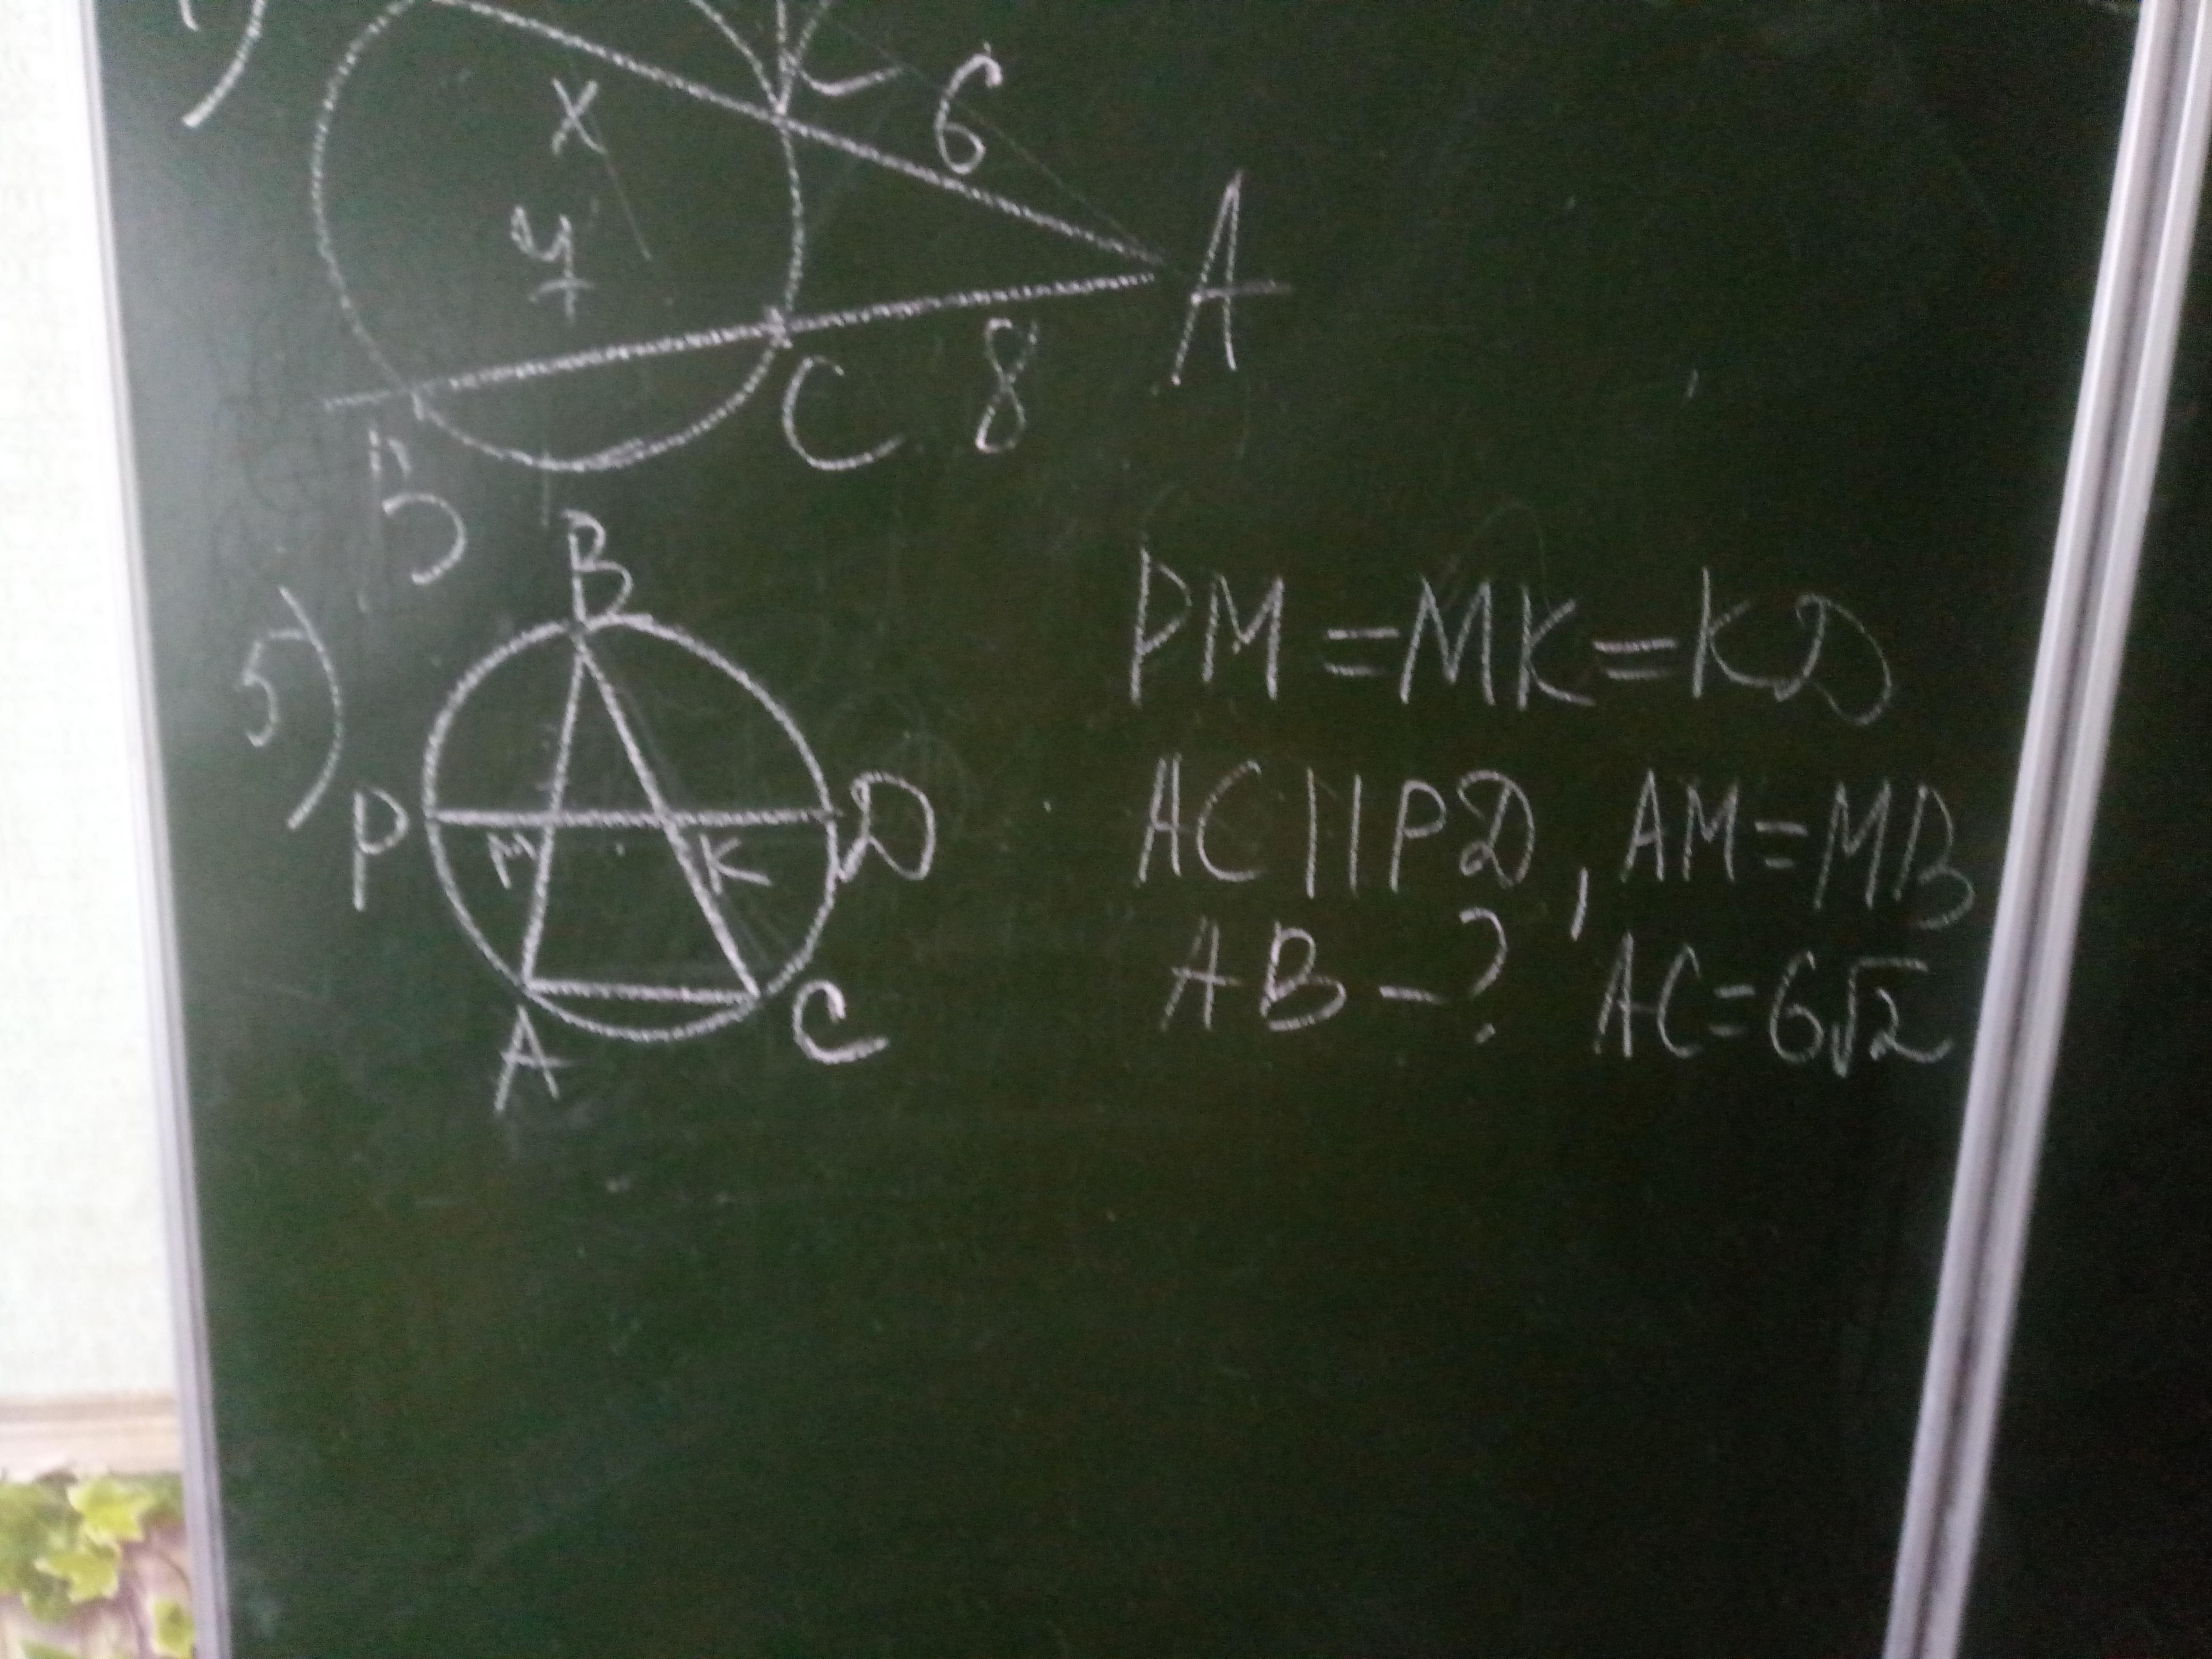 K
6
x
y
A
C
8
B
5)
B
P
M
K
D
A
C
PM = MK = KD
AC || PD, AM = MB
AB - ? AC = 6√2